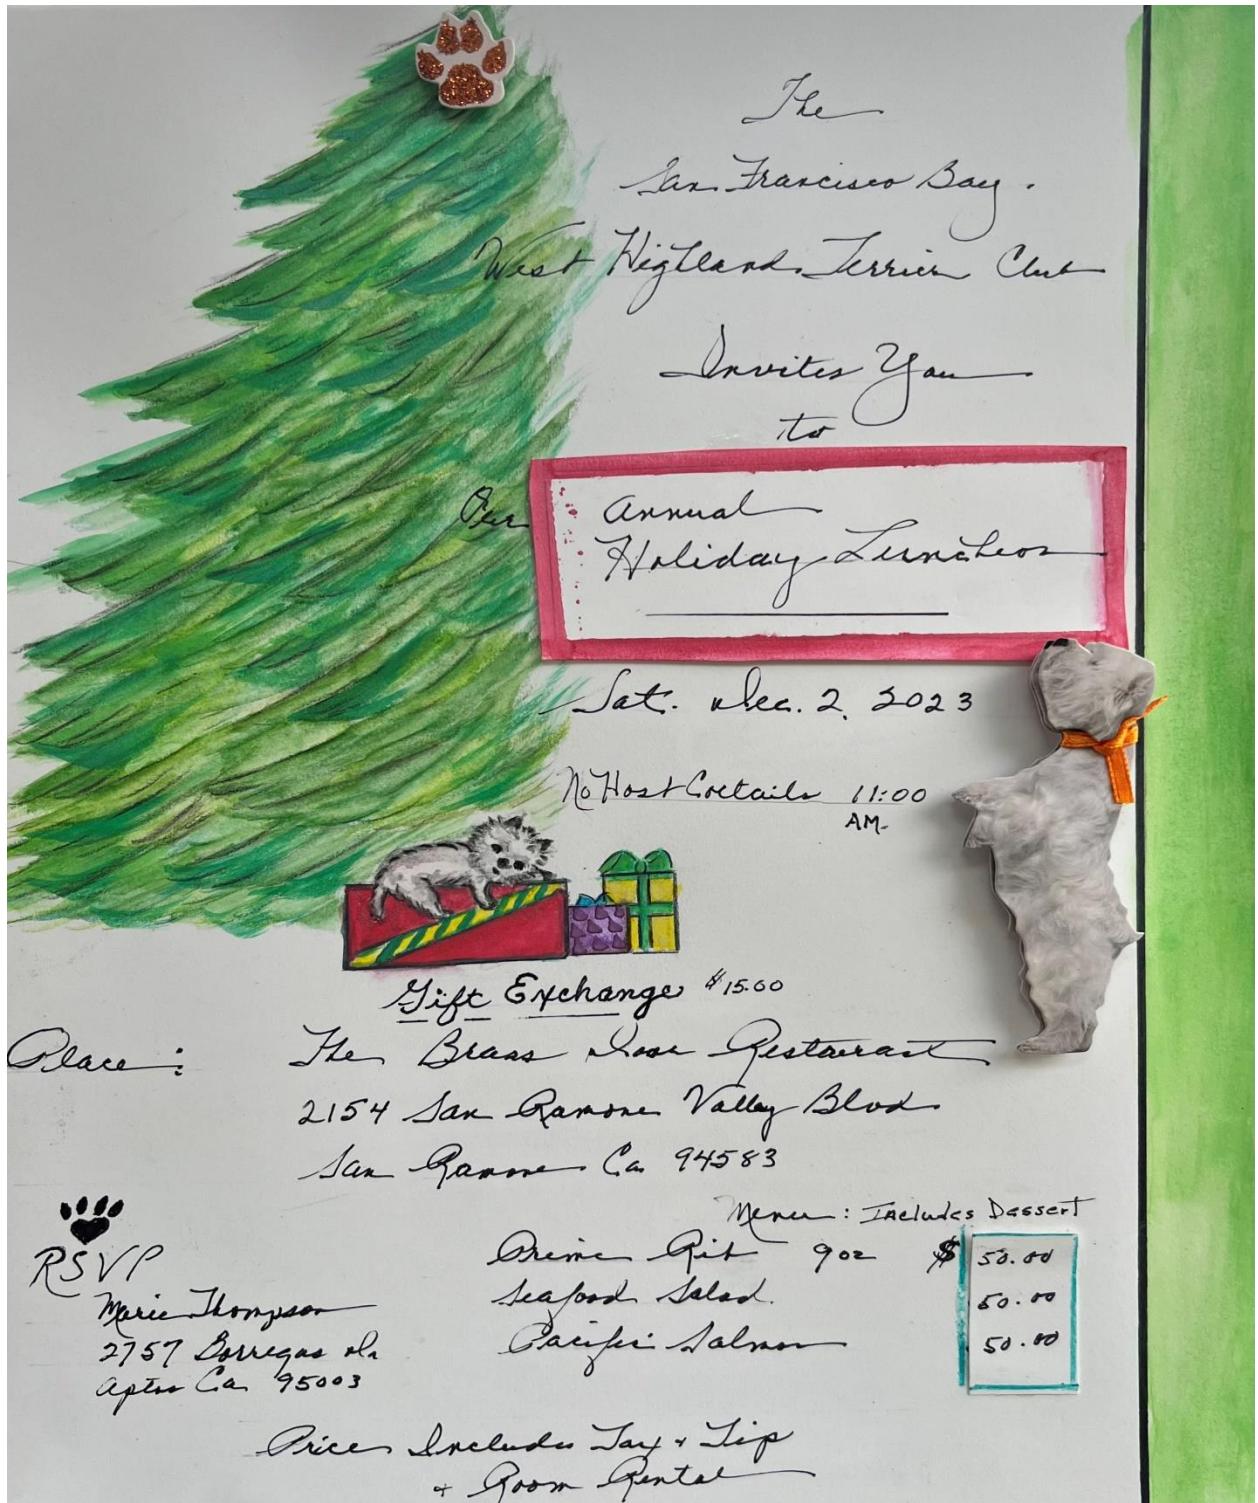 The
San Francisco Bay.
West Highland Terrier Club
Invites You
to
Our Annual
Holiday Luncheon
Sat. Dec. 2, 2023
No Host Coctails 11:00
AM.
Gift Exchange $15.00
Place: The Brass Door Restaurant
2154 San Ramon Valley Blvd
San Ramon Ca 94583
Menu: Includes Dessert
Prime Rib 9oz $ 50.00
Seafood Salad. 50.00
Pacific Salmon 50.00
RSVP
Marie Thompson
2757 Borregas Dr
Aptos Ca 95003
Price Includes Tax + Tip
+ Room Rental